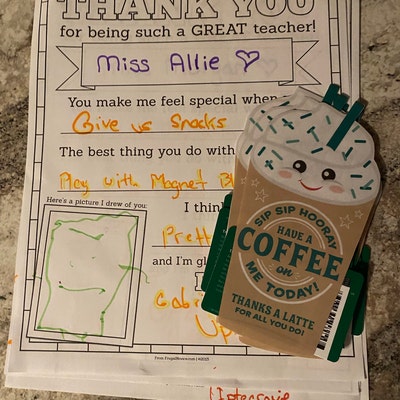 THANK YOU
for being such a GREAT teacher!
Miss Allie
You make me feel special when
Give us Snacks
The best thing you do with
Play with Magnet Bl
Here's a picture I drew of you:
I think
Prett
and I'm gl
Gabri
Up
SIP SIP HOORAY
HAVE A
COFFEE
on
ME TODAY!
THANKS A LATTE
FOR ALL YOU DO!